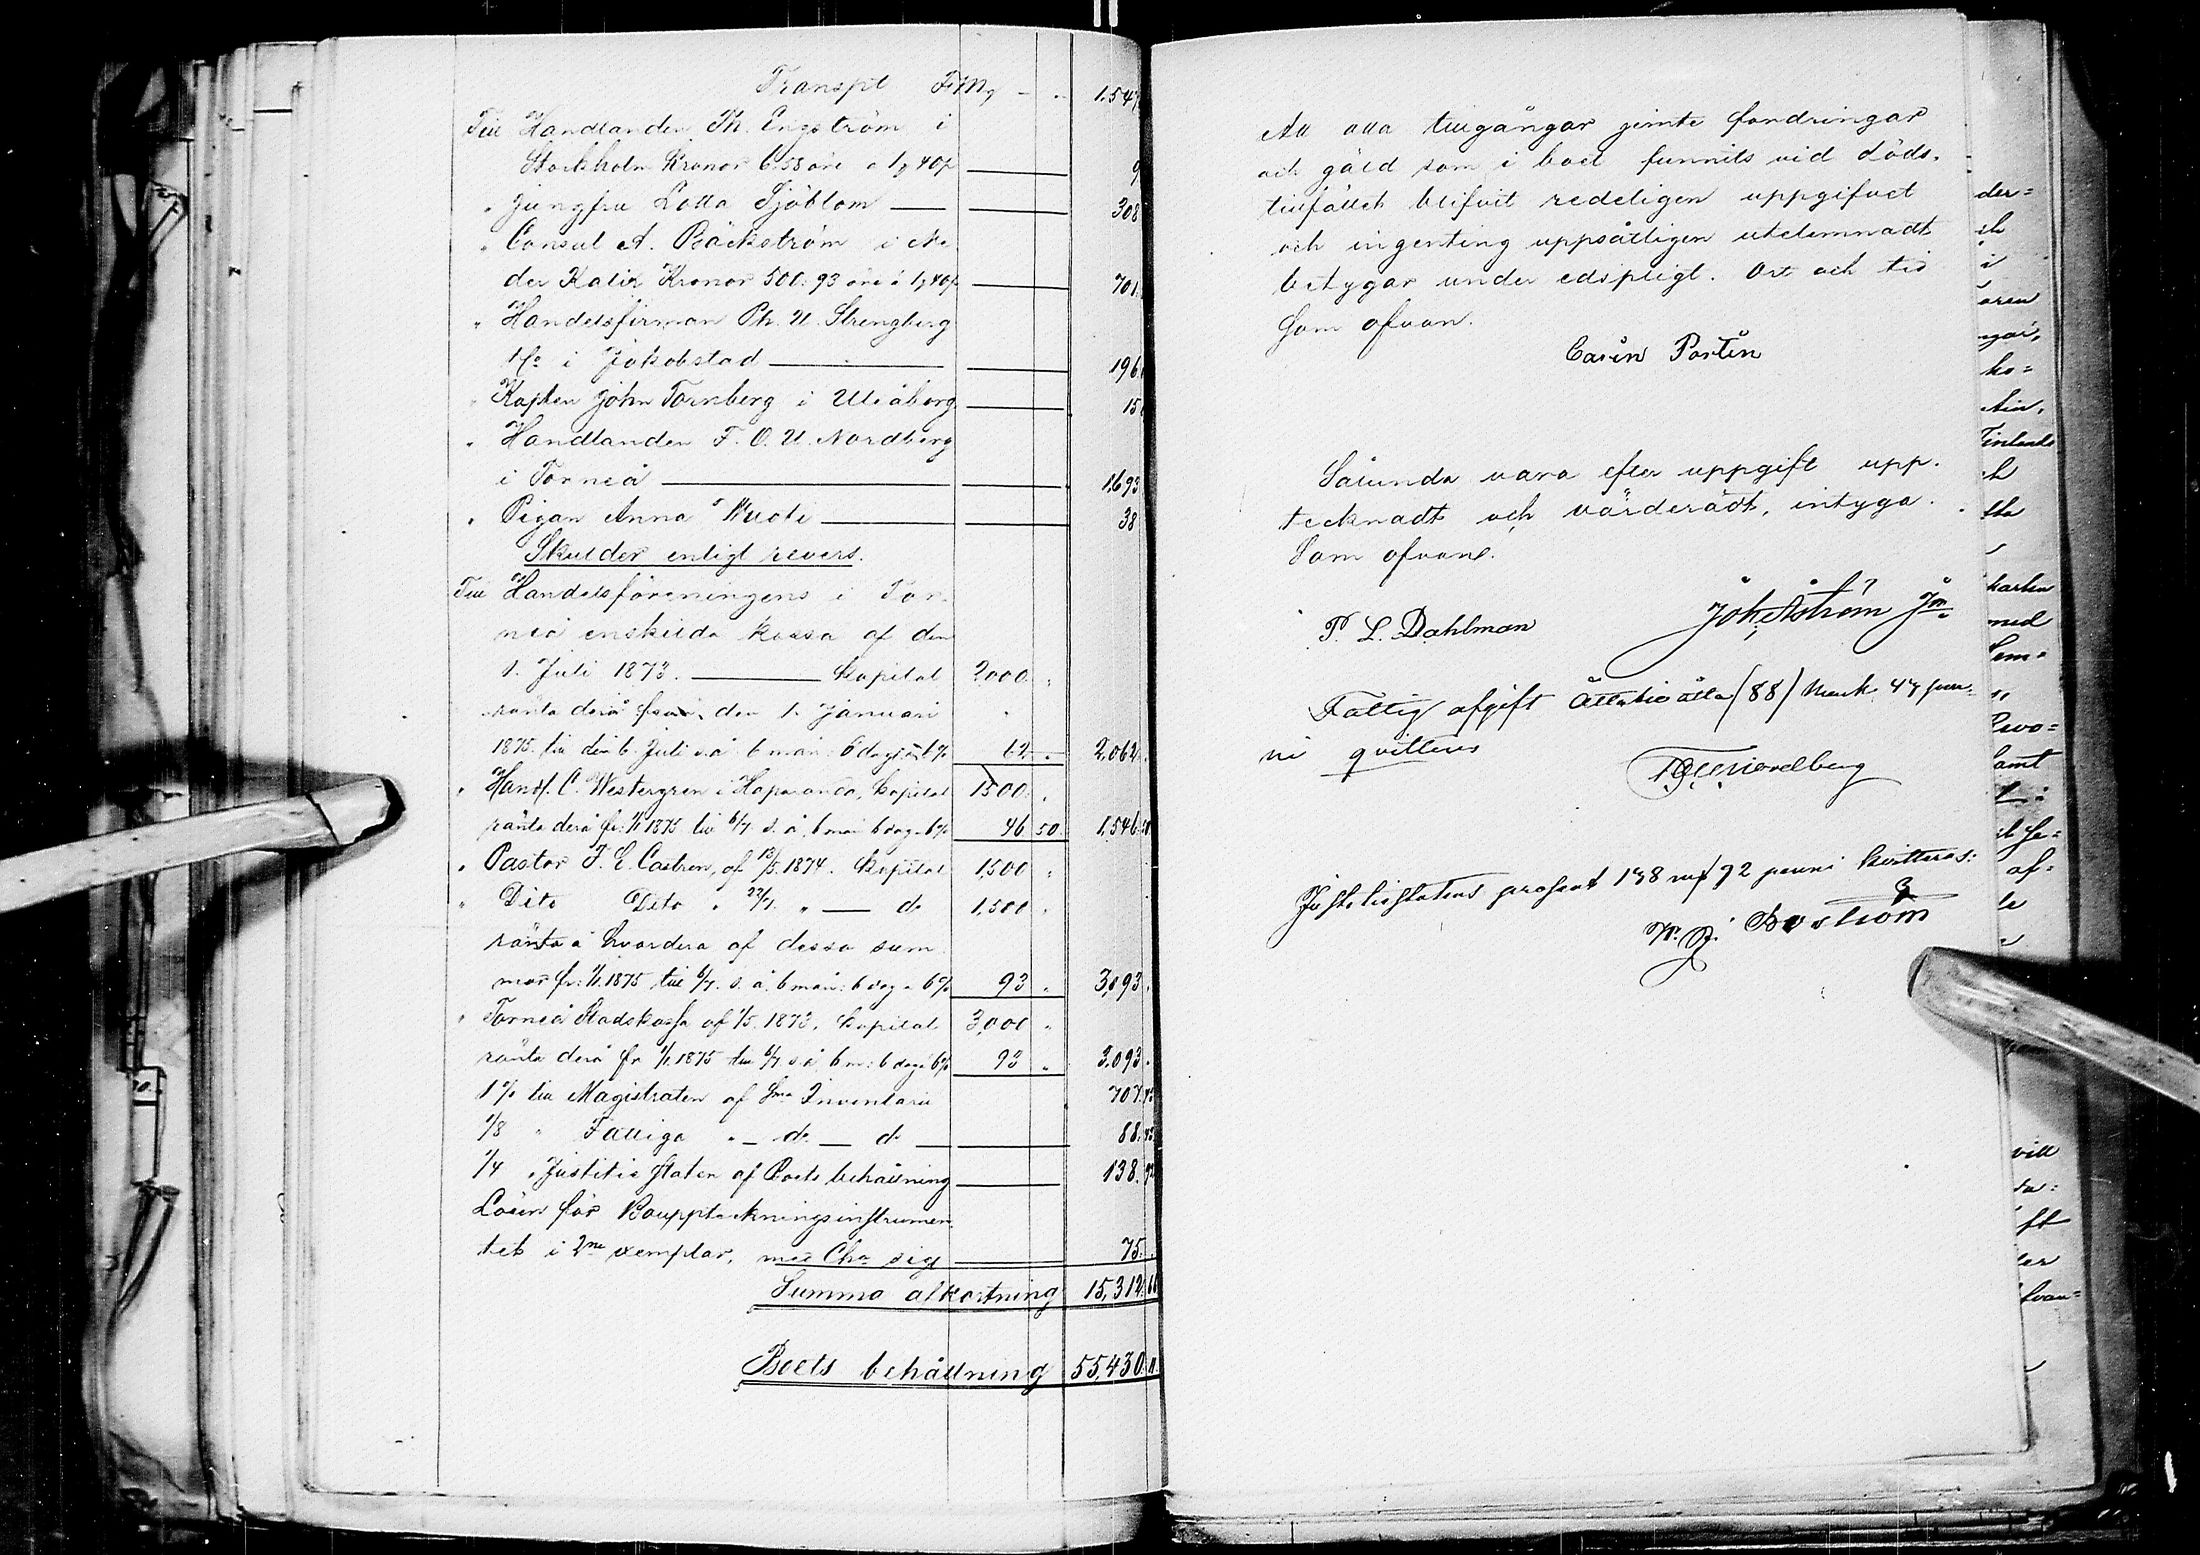 Transpt FMg - " 1,547
Till Handlanden Th. Engström i
Stockholm Kronor 6:58 öre a 1,40 p 9
" Jungfru Lotta Sjöblom 308
" Consul A. Bäckström i Ne
der Kalix Kronor 500:93 öre á 1,40 p 701
" Handelsfirman Ph. U. Strengberg
& Co i Jakobstad 196
" Kapten John Tornberg i Uleåborg 15
" Handlanden F. O. U. Nordberg
i Torneå 1,693
" Pigan Anna Wuoti 38
Skulder enligt revers.
Till Handelsföreningens i Tor-
neå enskilda kassa af den
1. Juli 1873. Kapital 2000 "
ränta derå från den 1. Januari
1875 till den 6. Juli s. å. 6 mån: 6 dag: a 6% 62 " 2,062
" Handl. C. Westergren i Haparanda, Kapital 1500 "
ränta derå fr: 1/1 1875 till 6/7 s. å. 6 mån 6 dag a 6% 46 50 1,546 50
" Pastor F. E. Castren, af 13/5 1874. Kapital 1,500 "
" Dito Dito " 22/7 " — d:o 1,500 "
ränta å hvardera af dessa sum
mor fr: 1/1 1875 till 6/7 s. å. 6 mån: 6 dag a 6% 93 " 3,093
" Torneå Stadskassa af 1/5 1873, Kapital 3,000 "
ränta derå fr 1/1 1875 till 6/7 s å 6 m: 6 dag a 6% 93 " 3,093
1% till Magistraten af Sma Inventarii 707
1/8 " Fattiga " — d:o — d:o 88
1/4 " Justitie Staten af Boets behållning 138 92
Lösen för Bouppteckningsinstrumen
tet i 2ne exemplar, med Cha sig 75
Summa afkortning 15,312
Boets behållning 55,430
Att alla tillgångar jemte fordringar
och gäld som i boet funnits vid döds-
tillfället blifvit redeligen uppgifvet
och ingenting uppsåtligen utelemnadt
betygar under edspligt. Ort och tid
Som ofvan.
Carin Portin
Sålunda vara efter uppgift upp-
tecknadt och värderadt, intyga.
Som ofvan.
P. L. Dahlman Joh. Åström Jon
Fattig afgift Åttatio åtta (88) Mark 43 pen-
ni qvitteras
F O U Nordberg
Justitiestatens procent 138 mk 92 penni kvitteras:
W. J. Boström
der=
i
ho=
Finlands
med
samt
af=
vill